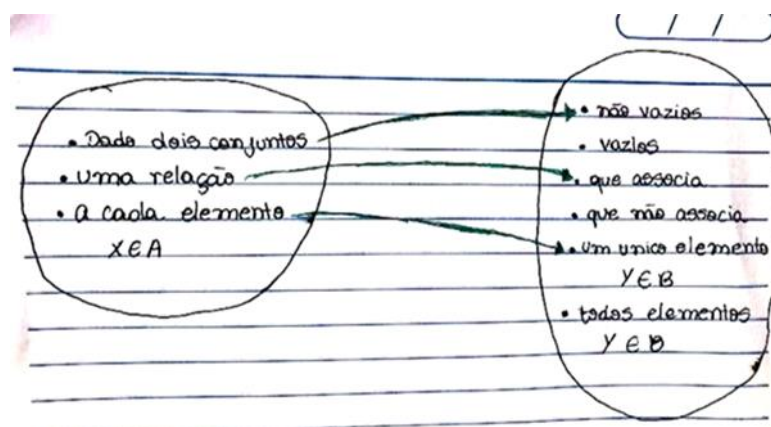 • Dado dois conjuntos
• uma relação
• a cada elemento
X ∈ A
• não vazios
• vazios
• que associa
• que não associa
• um unico elemento
Y ∈ B
• todos elementos
Y ∈ B